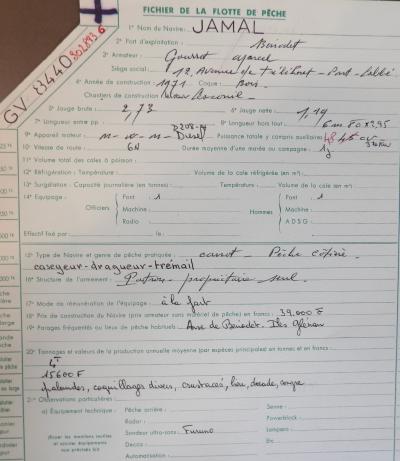 FICHIER DE LA FLOTTE DE PÊCHE
GV 83440
302893 G
1° Nom du Navire : JAMAL
2° Port d'exploitation : Bénodet
3° Armateur : Gourret Marcel
Siège social : 12, Avenue de Tréchnet - Pont-l'abbé
4° Année de construction : 1971 Coque : Bois
Chantiers de construction :
5° Jauge brute : 2,73 6° Jauge nette : 1,19
7° Longueur entre pp. : 8° Longueur hors tout : 6m80 x 2,95
9° Appareil moteur : Diesel Puissance totale y compris auxiliaires : 45 cv
10° Vitesse de route : 6N Durée moyenne d'une marée ou campagne : 1j
11° Volume total des cales à poisson :
12° Réfrigération : Température : Volume de la cale réfrigérée (en m³) :
13° Surgélation : Capacité journalière (en tonnes) : Température : Volume de la cale (en m³) :
14° Equipage :
Officiers Pont : 1 Hommes Pont : 1
Machine : Machine :
Radio : A D S G :
Effectif fixé par : le :
15° Type de Navire et genre de pêche pratiquée : canot - Pêche côtière
caseyeur-dragueur-trémail
16° Structure de l'armement : Patron-propriétaire seul.
17° Mode de rémunération de l'équipage : à la part
18° Prix de construction du Navire (prix armateur sans matériel de pêche) en francs : 39.000 F
19° Parages fréquentés ou lieux de pêche habituels : Anse de Bénodet. Iles Glénan
20° Tonnages et valeurs de la production annuelle moyenne (par espèces principales) en tonnes et en francs :
4T
15600 F
palourdes, coquillages divers, crustacés, lieu, dorade, congre
21° Observations particulières :
a) Équipement technique : Pêche arrière : Senne :
Radar : Powerblock :
Sondeur ultra-sons : Furuno Lampara :
(Rayer les mentions inutiles Decca : Etc.
et ajouter équipements
non précisés ici) Automatisation :